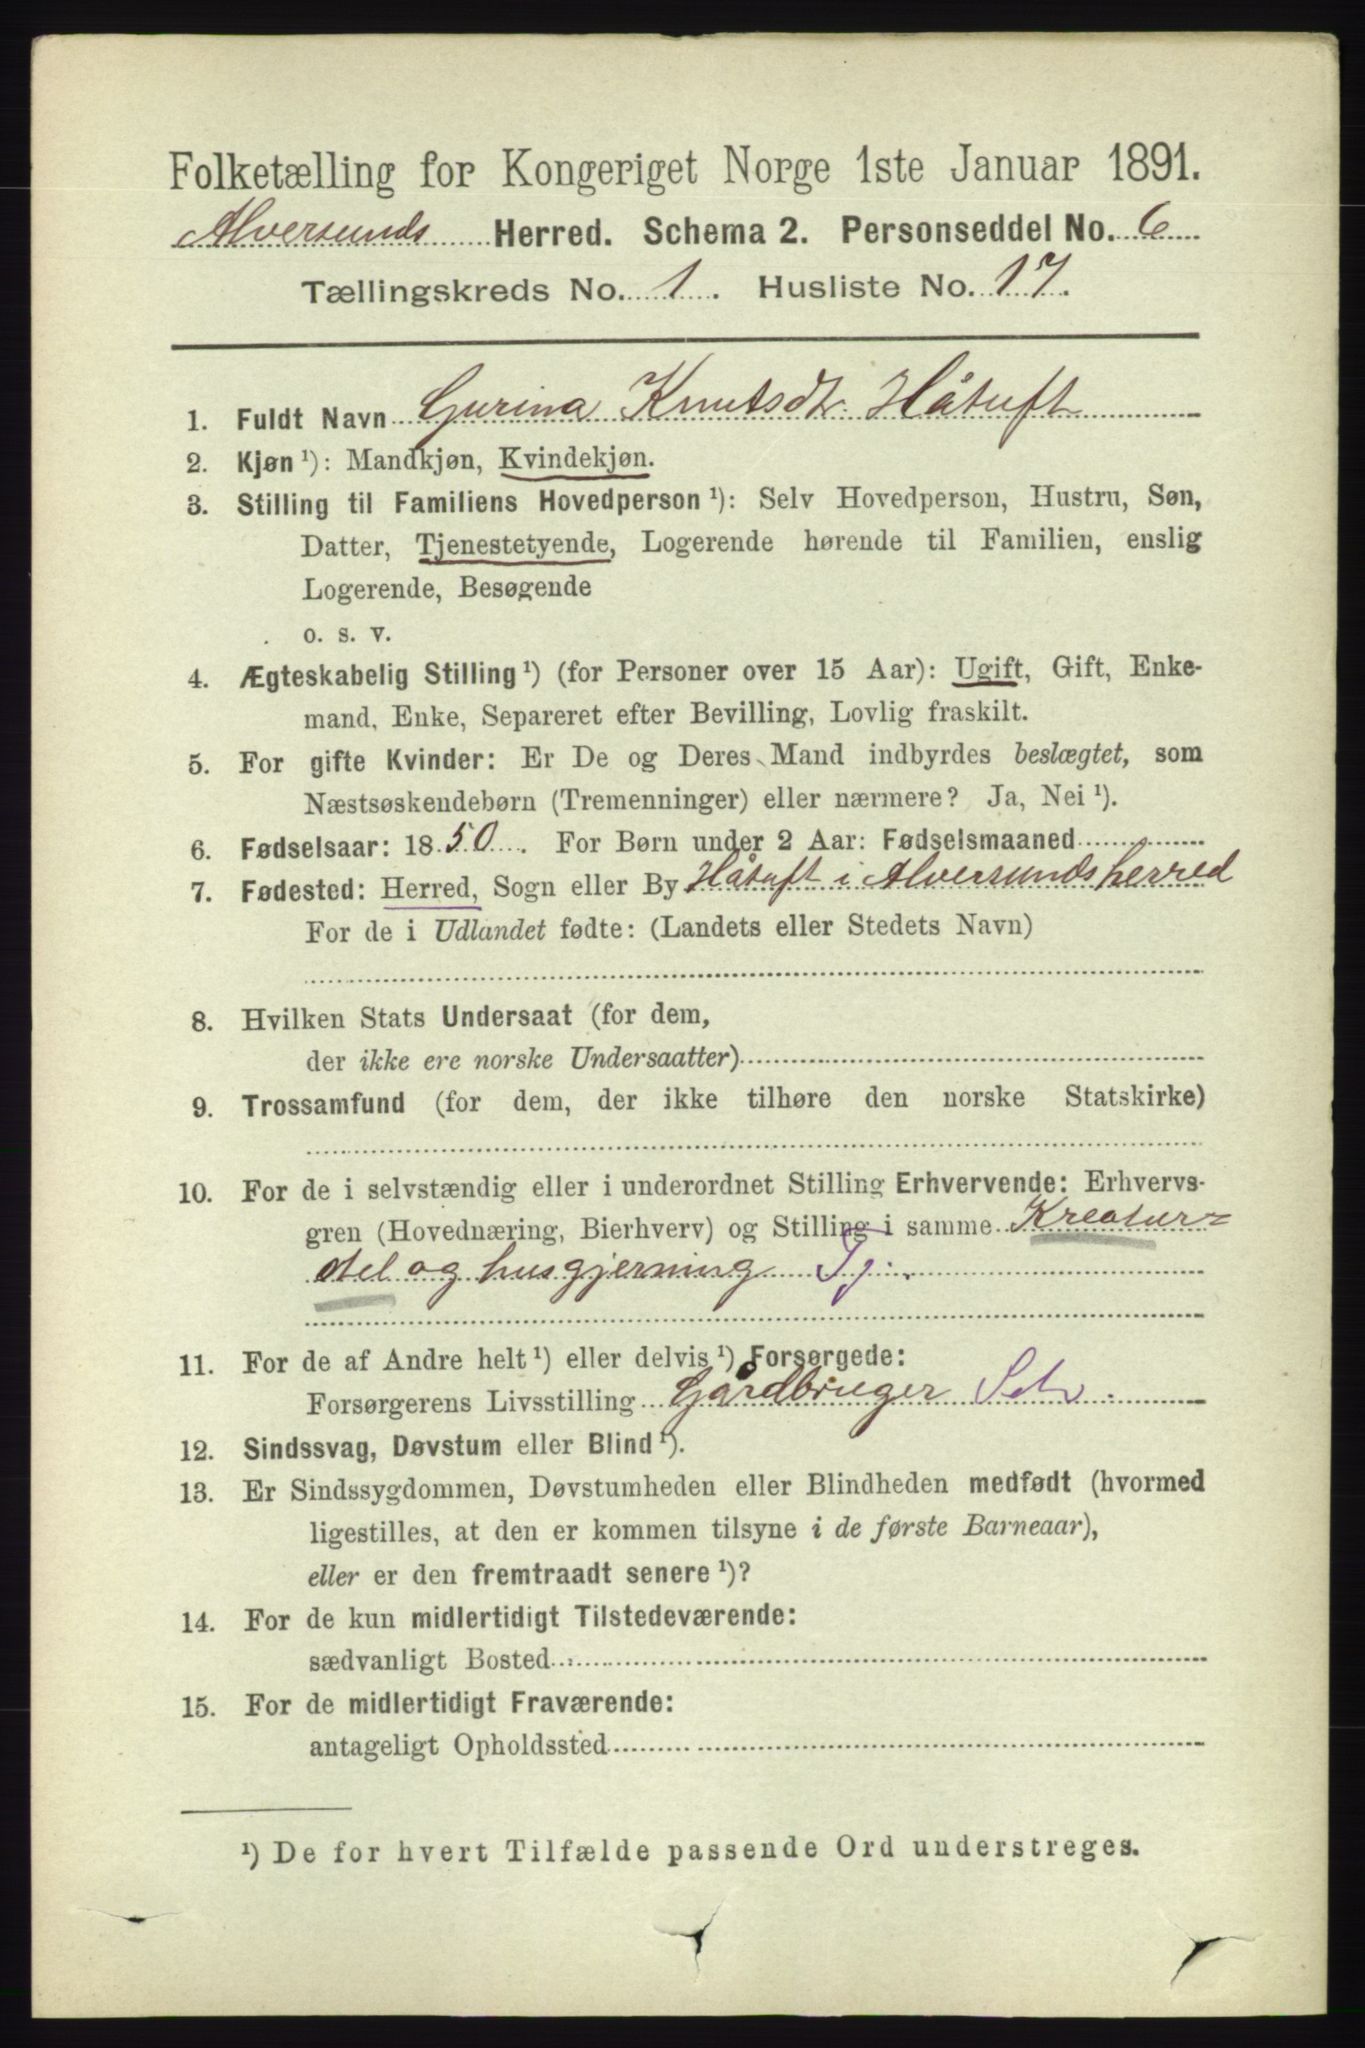 Folketælling for Kongeriget Norge 1ste Januar 1891.
Alversunds Herred. Schema 2. Personseddel No. 6
Tællingskreds No. 1. Husliste No. 17.
1. Fuldt Navn Gurina Knutsdt. Håtuft
2. Kjøn ¹): Mandkjøn, Kvindekjøn.
3. Stilling til Familiens Hovedperson ¹): Selv Hovedperson, Hustru, Søn,
Datter, Tjenestetyende, Logerende hørende til Familien, enslig
Logerende, Besøgende
o. s. v.
4. Ægteskabelig Stilling ¹) (for Personer over 15 Aar): Ugift, Gift, Enke-
mand, Enke, Separeret efter Bevilling, Lovlig fraskilt.
5. For gifte Kvinder: Er De og Deres Mand indbyrdes beslægtet, som
Næstsøskendebørn (Tremenninger) eller nærmere? Ja, Nei ¹).
6. Fødselsaar: 1850. For Børn under 2 Aar: Fødselsmaaned
7. Fødested: Herred, Sogn eller By Håtuft i Alversundsherred
For de i Udlandet fødte: (Landets eller Stedets Navn)
8. Hvilken Stats Undersaat (for dem,
der ikke ere norske Undersaatter)
9. Trossamfund (for dem, der ikke tilhøre den norske Statskirke)
10. For de i selvstændig eller i underordnet Stilling Erhvervende: Erhvervs-
gren (Hovednæring, Bierhverv) og Stilling i samme Kreatur-
stel og husgjerning Tj.
11. For de af Andre helt ¹) eller delvis ¹) Forsørgede:
Forsørgerens Livsstilling Gårdbruger
12. Sindssvag, Døvstum eller Blind ¹).
13. Er Sindssygdommen, Døvstumheden eller Blindheden medfødt (hvormed
ligestilles, at den er kommen tilsyne i de første Barneaar),
eller er den fremtraadt senere ¹)?
14. For de kun midlertidigt Tilstedeværende:
sædvanligt Bosted
15. For de midlertidigt Fraværende:
antageligt Opholdssted
¹) De for hvert Tilfælde passende Ord understreges.